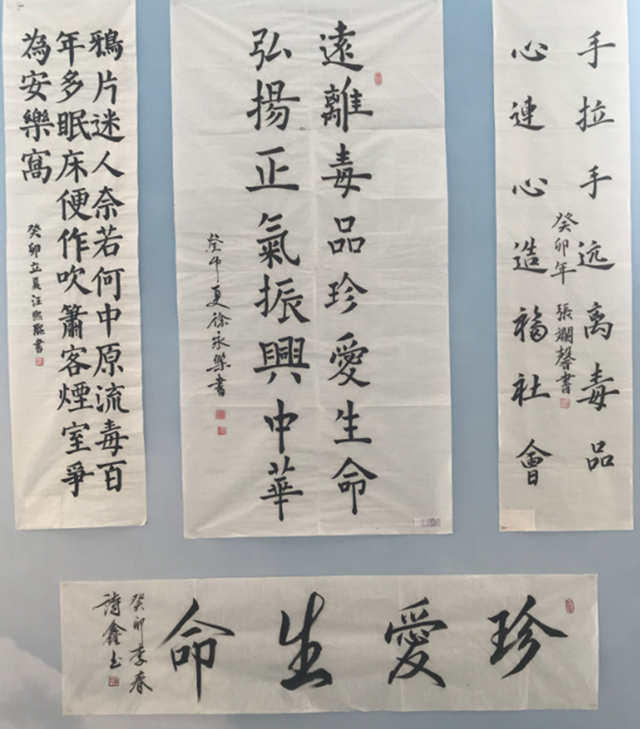 手拉手远离毒品
心連心造福社會
癸卯年 張斓馨書
遠離毒品珍愛生命
弘揚正氣振興中華
癸卯夏徐永樂書
鴉片迷人奈若何中原流毒百
年多眠床便作吹簫客煙室爭
為安樂窩
癸卯立夏汪熙書
珍愛生命
癸卯季春
诗鑫书